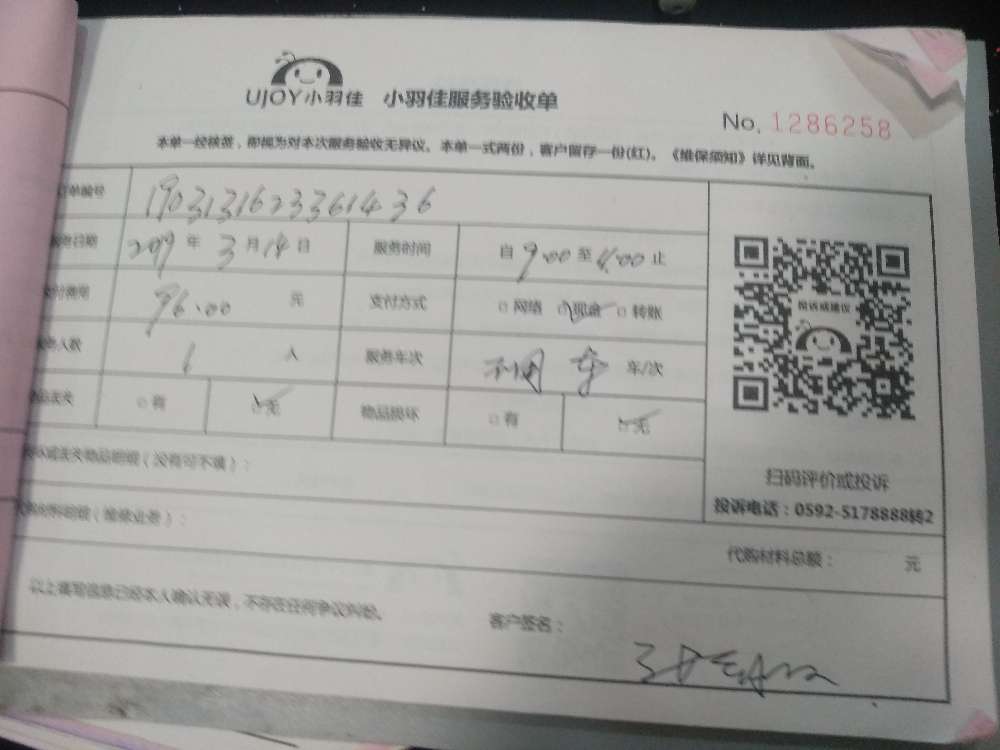 UJOY小羽佳 小羽佳服务验收单
No. 1286258
本单一经核签，即视为对本次服务验收无异议。本单一式两份，客户留存一份(红)。《维保须知》详见背面。
订单编号 1903131623361436
服务日期 2019年3月14日 服务时间 自9:00至 止
支付费用 96.00 元 支付方式 网络 现金 转账
服务人数 1 人 服务车次 车/次
物品丢失 有 无 物品损坏 有 无
损坏或丢失物品明细（没有可不填）：
代购材料明细（维修业务）：
投诉或建议
扫码评价或投诉
投诉电话：0592-5178888转2
代购材料总额： 元
以上填写信息已经本人确认无误，不存在任何争议纠纷。 客户签名：